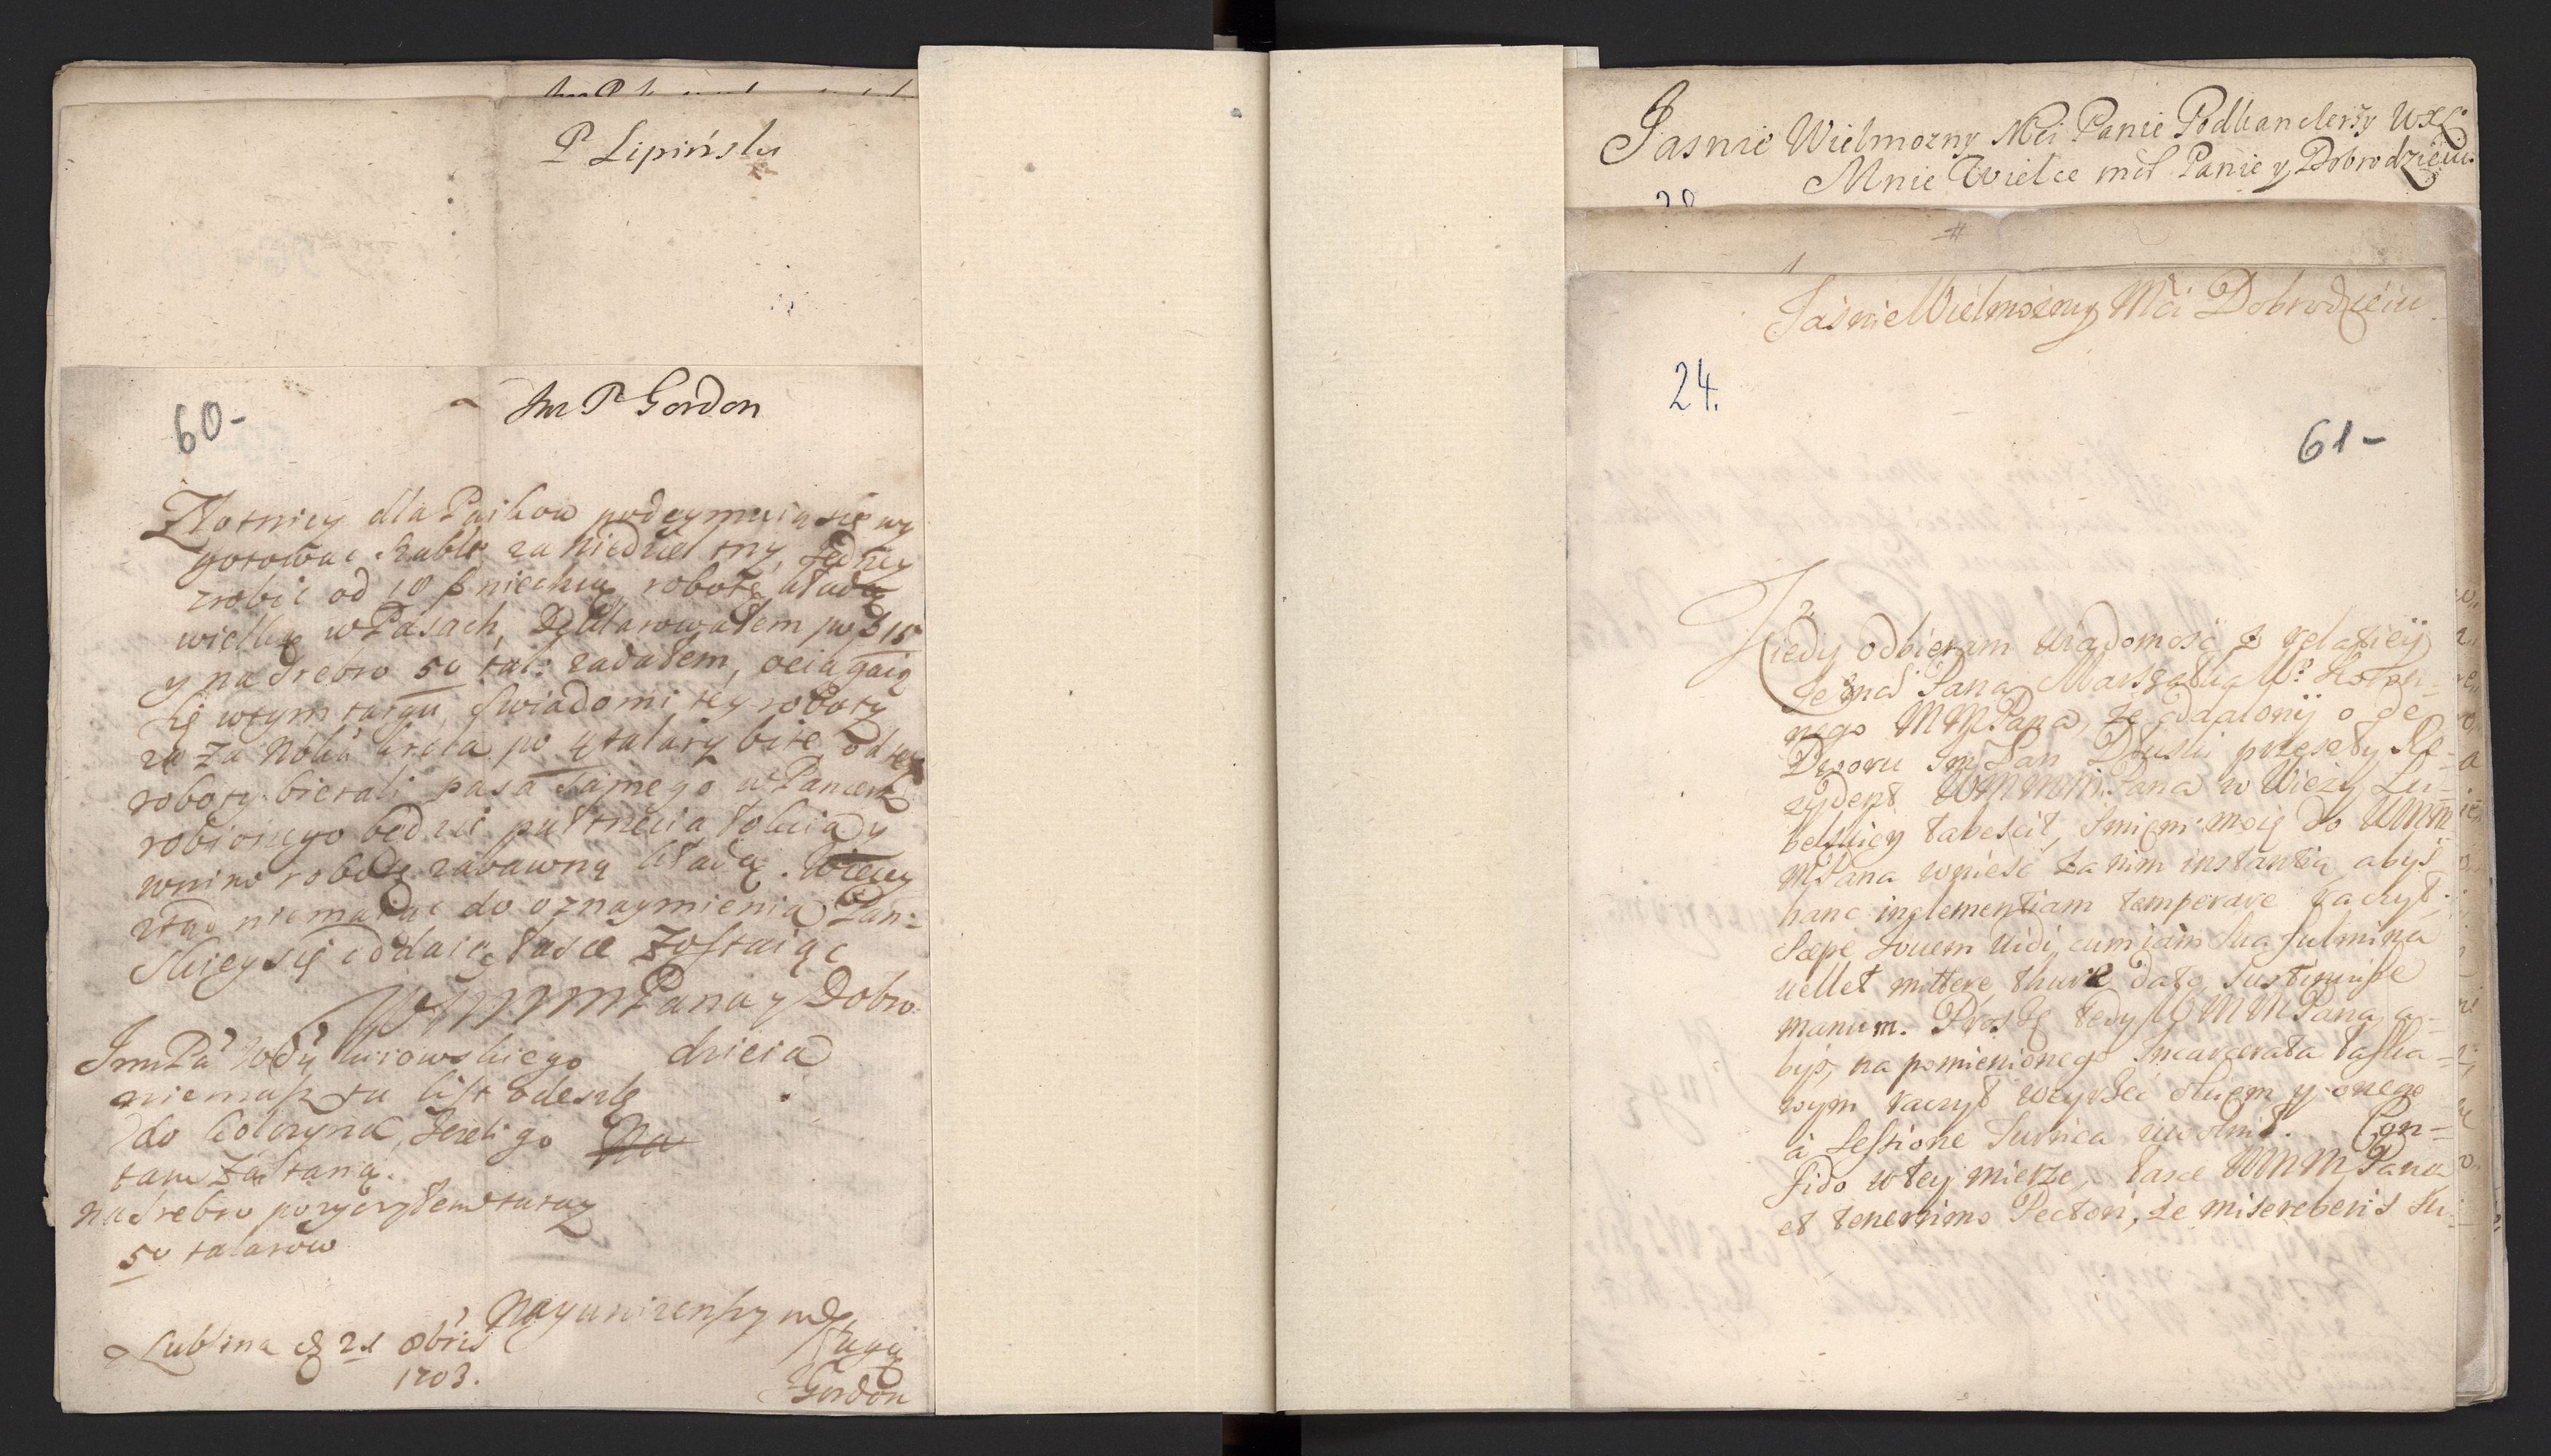 P Lipińsky
60-
Im P Gordon
Złotnicy dla Paików podeymuią się wy
gotować Szable za niedziel trzy, ledwcy
zrobić od 10 ß niechcą, robotę kładą
wielką w Pasach, Deklarowałem po ß 15
y na Srebro 50 tal: zadałem, ociągaią
się wtym targu, Swiadomi tey roboty
ze za po 4 talary bite od tey
roboty bierali pasa samego w Pancerz
robionego będzie pułtrzecia łokcia y
wnim robotę zabawną kładą. Wiecey
nie maiąc do oznaymienia Pan=
skiey się oddaię łasce Zostaiąc
WMMMPana y Dobro
dzieia
ImPa kurowskiego
niemasz tu list odeszlę
do Kobrynia, Jezeli go
tam Zastaną.
na Srebro pozyczyłem tutay
50 talarow
Nayunizenszy
sługa
Gordon
z Lublina d 21 8bris
1703.
Jasnie Wielmozny Mci Panie Podkanclerzy WXL
Mnie Wielce mći Panie y Dobrodzieiu.
20
#
Jaśnie Wielmożny Mći Dobrodzieiu
24.
61-
Kiedy odbieram wiadomość z relatiey
Jeomć Pana Marszałka Wo Koron-
nego MMPana, że oddalony o de
Dworu Im Pan Dłuski przeszły Re-
zydent WMMM Pana w Wieży Lu-
belskiey tabescit, Smiem moię do WMM
MPana wnieść za nim instantią abyś
hanc inclementiam temperare raczył.
Sæpe Jouem vidi cum iam sua fulmina
vellet mittere, thure dato, Sustinuisse
manum. Proszę tedy WMMPana, a-
byś, na pomienionego Incarcerata łaska-
wym raczył weyrzeć okiem y onego
à Sessione Surica uwolnił. Con=
fido wtey mierze, łasce WMM Pana
et tenerrimo Pectori, że misereberis Su-